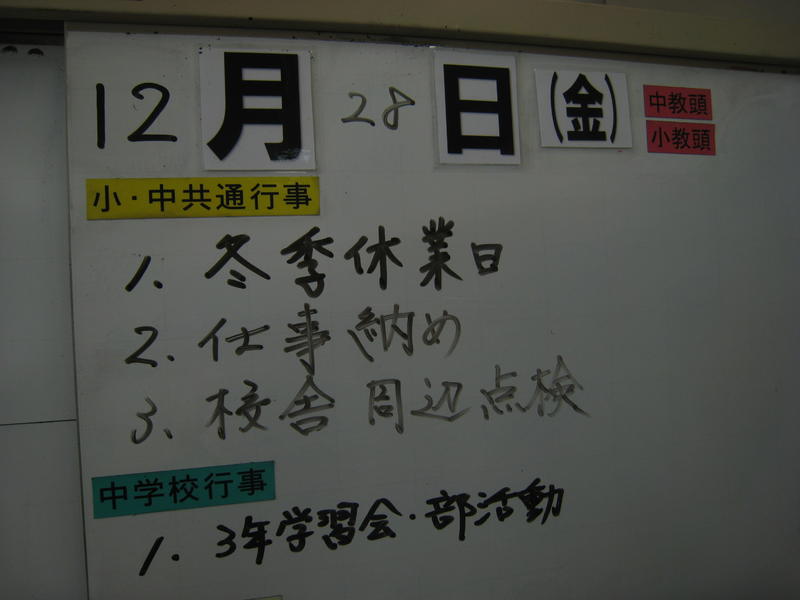 12月28日(金)
中教頭
小教頭
小・中共通行事
1. 冬季休業日
2. 仕事納め
3. 校舎周辺点検
中学校行事
1. 3年学習会・部活動